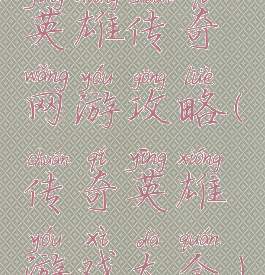 yīng xióng chuán qí
英雄传奇
wǎng yóu gōng lüè
网游攻略(
chuán qí yīng xióng
传奇英雄
yóu xì dà quán
游戏大全)